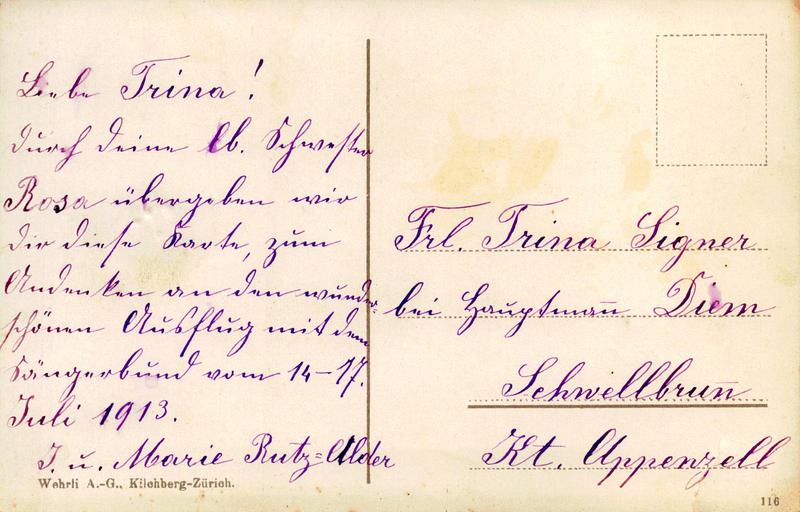 Liebe Trina!
durch deine lb. Schwester
Rosa übergeben wir
dir diese Karte, zum
Andenken an den wunder-
schönen Ausflug mit dem
Sängerbund vom 14-17.
Juli 1913.
J. u. Marie Rutz=Alder
Wehrli A.-G., Kilchberg-Zürich.
Frl. Trina Signer
bei Hauptmañ Diem
Schwellbrun̄
Kt. Appenzell
116